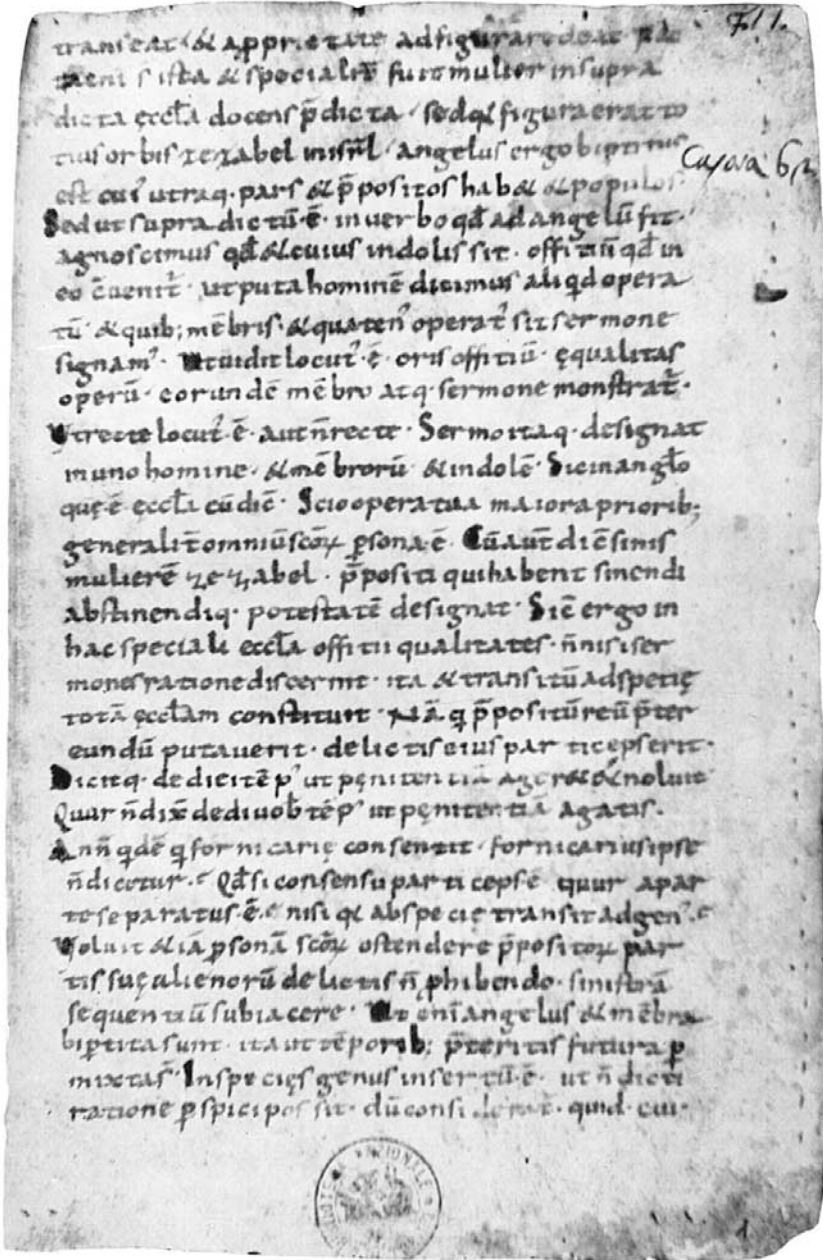 F. 1 1.
transeat · & apprietate adfigurā redeat
ista & specialit̄ fuit mulier insupra
dicta ęccl̄a docens p̄dicta · sedq& figura erat to
tius orbis zezabel inisr̄l · angelus ergo bipertitus
Cassa
est cui' utraq· pars & p̄positos hab& & populos·
Sed ut supra dictū·ē· in uerbo qđ ad angelū fit·
agnoscimus qđ & cuius indolis sit · offitiū qđ in
eo c̄uenit̄ · utputa hominē dicimus aliqđ opera
tū · & quib; mēbris · & quaten' operat̄ sit sermone
signam' · Ut uidit locut'·ē· oris offitiū · ęqualitas
operū · eorundē mēbro atq· sermone monstrat̄·
Ut recte locut'·ē· aut n̄ recte · Sermo itaq· designat
in uno homine · & mēbrorū & indolē · Sic in angl̄o
quę·ē· ęccl̄a cū dic̄ · Scio opera tua maiora priorib;
generalit̄ omniū sc̄oꝝ p̄sona·ē· Cū aut̄ dic̄ sinis
mulierē zezabel · p̄positi qui habent sinendi
abstinendiq· potestatē designat · Sic̄ ergo in
hac speciali eccl̄a offitii qualitates · n̄ nisi ser
mones ratione discernit · ita & transitū ad spetię
totā ęccl̄am constituit · Nā q p̄positū reū p̄ter
eundū putauerit · delictis eius particeps erit·
Dicitq· dedi ei tēp' ut pęnitentiā ager& & noluit
Quar n̄ dix̄ dedi uob̄ tēp' ut pęnitentiā agatis·
Ann̄ qdē q fornicarię consentit · fornicarius ipse
n̄ dicetur · Qđ si consensu particeps ē quur apar
te separatus·ē· nisi q& abspecie transit ad gen'·
Voluit & iā p̄sonā sc̄oꝝ ostendere p̄positoꝝ par
tis suę alienorū delictis n̄ phibendo · sinistrā
sequentiū subiacere · Ut enī angelus & mēbra
bip̄tita sunt · ita ut tēporib; p̄teritis futura p̄
mixta s̄· In specięs genus insertū·ē· ut n̄ dicti
ratione p̄spici possit · dū considerat̄ · quid · cui·
NAZIONALE
1